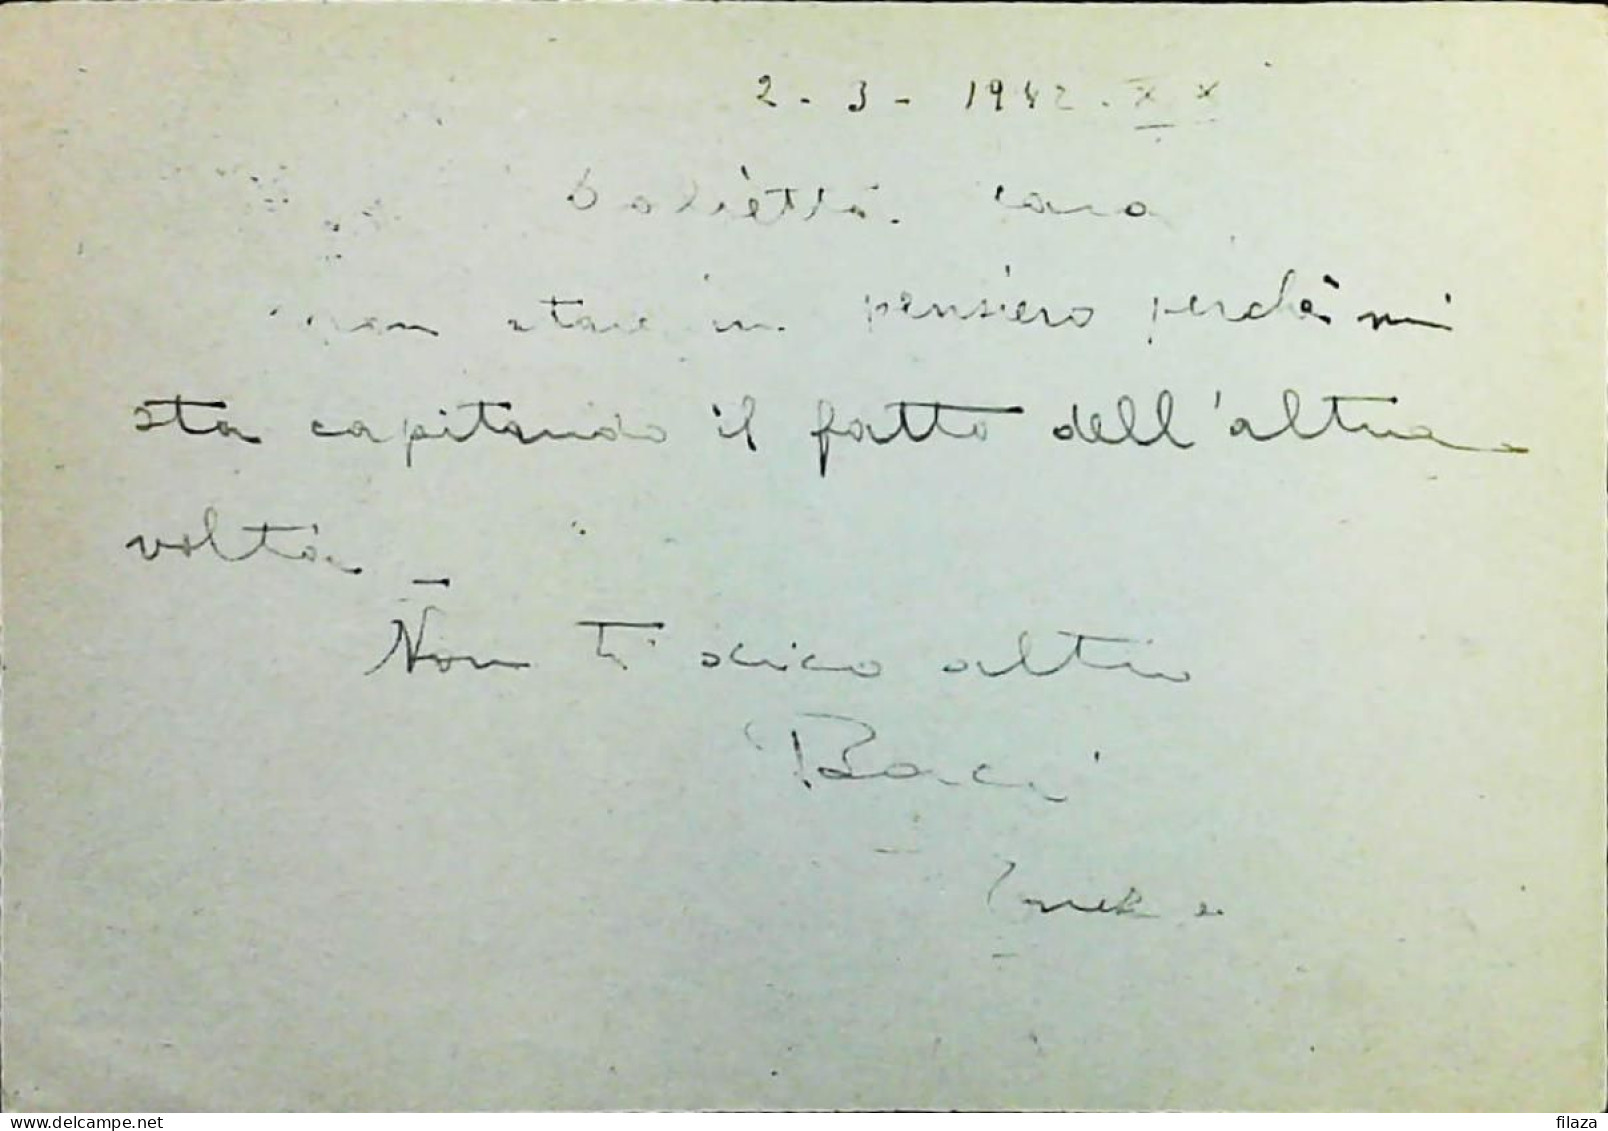 2 - 3 - 1942. XX
cara
non stare in pensiero perchè mi
sta capitando il fatto dell'altra
volta -
Non ti dico altro
Baci
delcampe.net
filaza